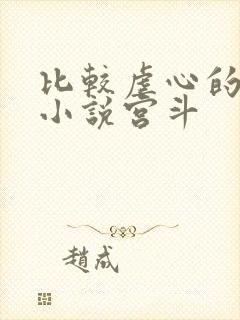 比較虐心的
小說宮斗
趙成